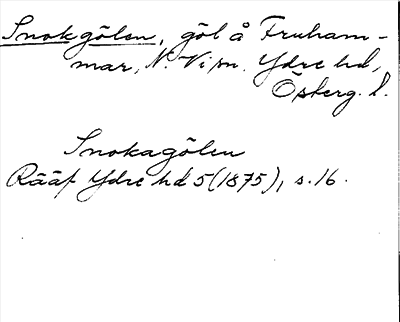 Snokgölen, göl å Fruham-
mar, N. Vi sn. Ydre hd,
Österg. l.
Snokagölen
Rääf Ydre hd 5 (1875), s. 16.